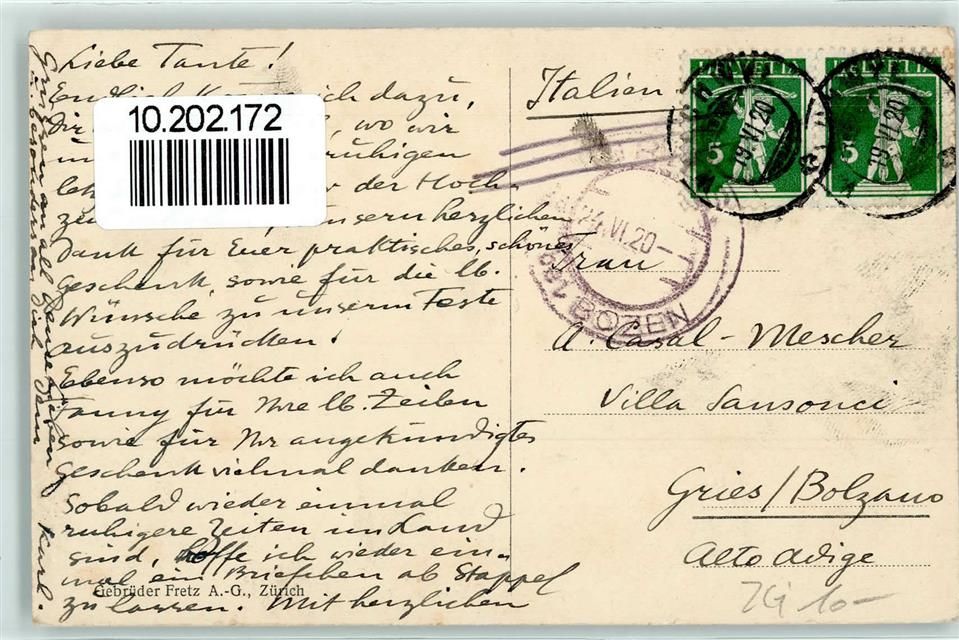 Liebe Tante!
Endlich ich dazu,
Dir wo wir
ruhigen
der Hoch-
unsern herzlichen
Dank für Euer praktisches, schönes
Geschenk, sowie für die lb.
Wünsche zu unserm Feste
auszudrücken!
Ebenso möchte ich auch
Fanny für Ihre lb. Zeilen
sowie für Ihr angekündigtes
Geschenk vielmal danken.
Sobald wieder einmal
ruhigere Zeiten im Land
sind, hoffe ich wieder ein-
mal ein Briefchen ab Stappel
zu lassen. Mit herzlichen
Grüssen an all
besonders an Dich
Karl.
Gebrüder Fretz A.-G., Zürich
10.202.172
Italien
HELVETIA
5
19.VI.20
HELVETIA
5
19.VI.20
24.VI.20
BOZEN
Frau
A. Casal-Mescher
Villa Sansouci
Gries/Bolzano
Alto Adige
ZG 10-